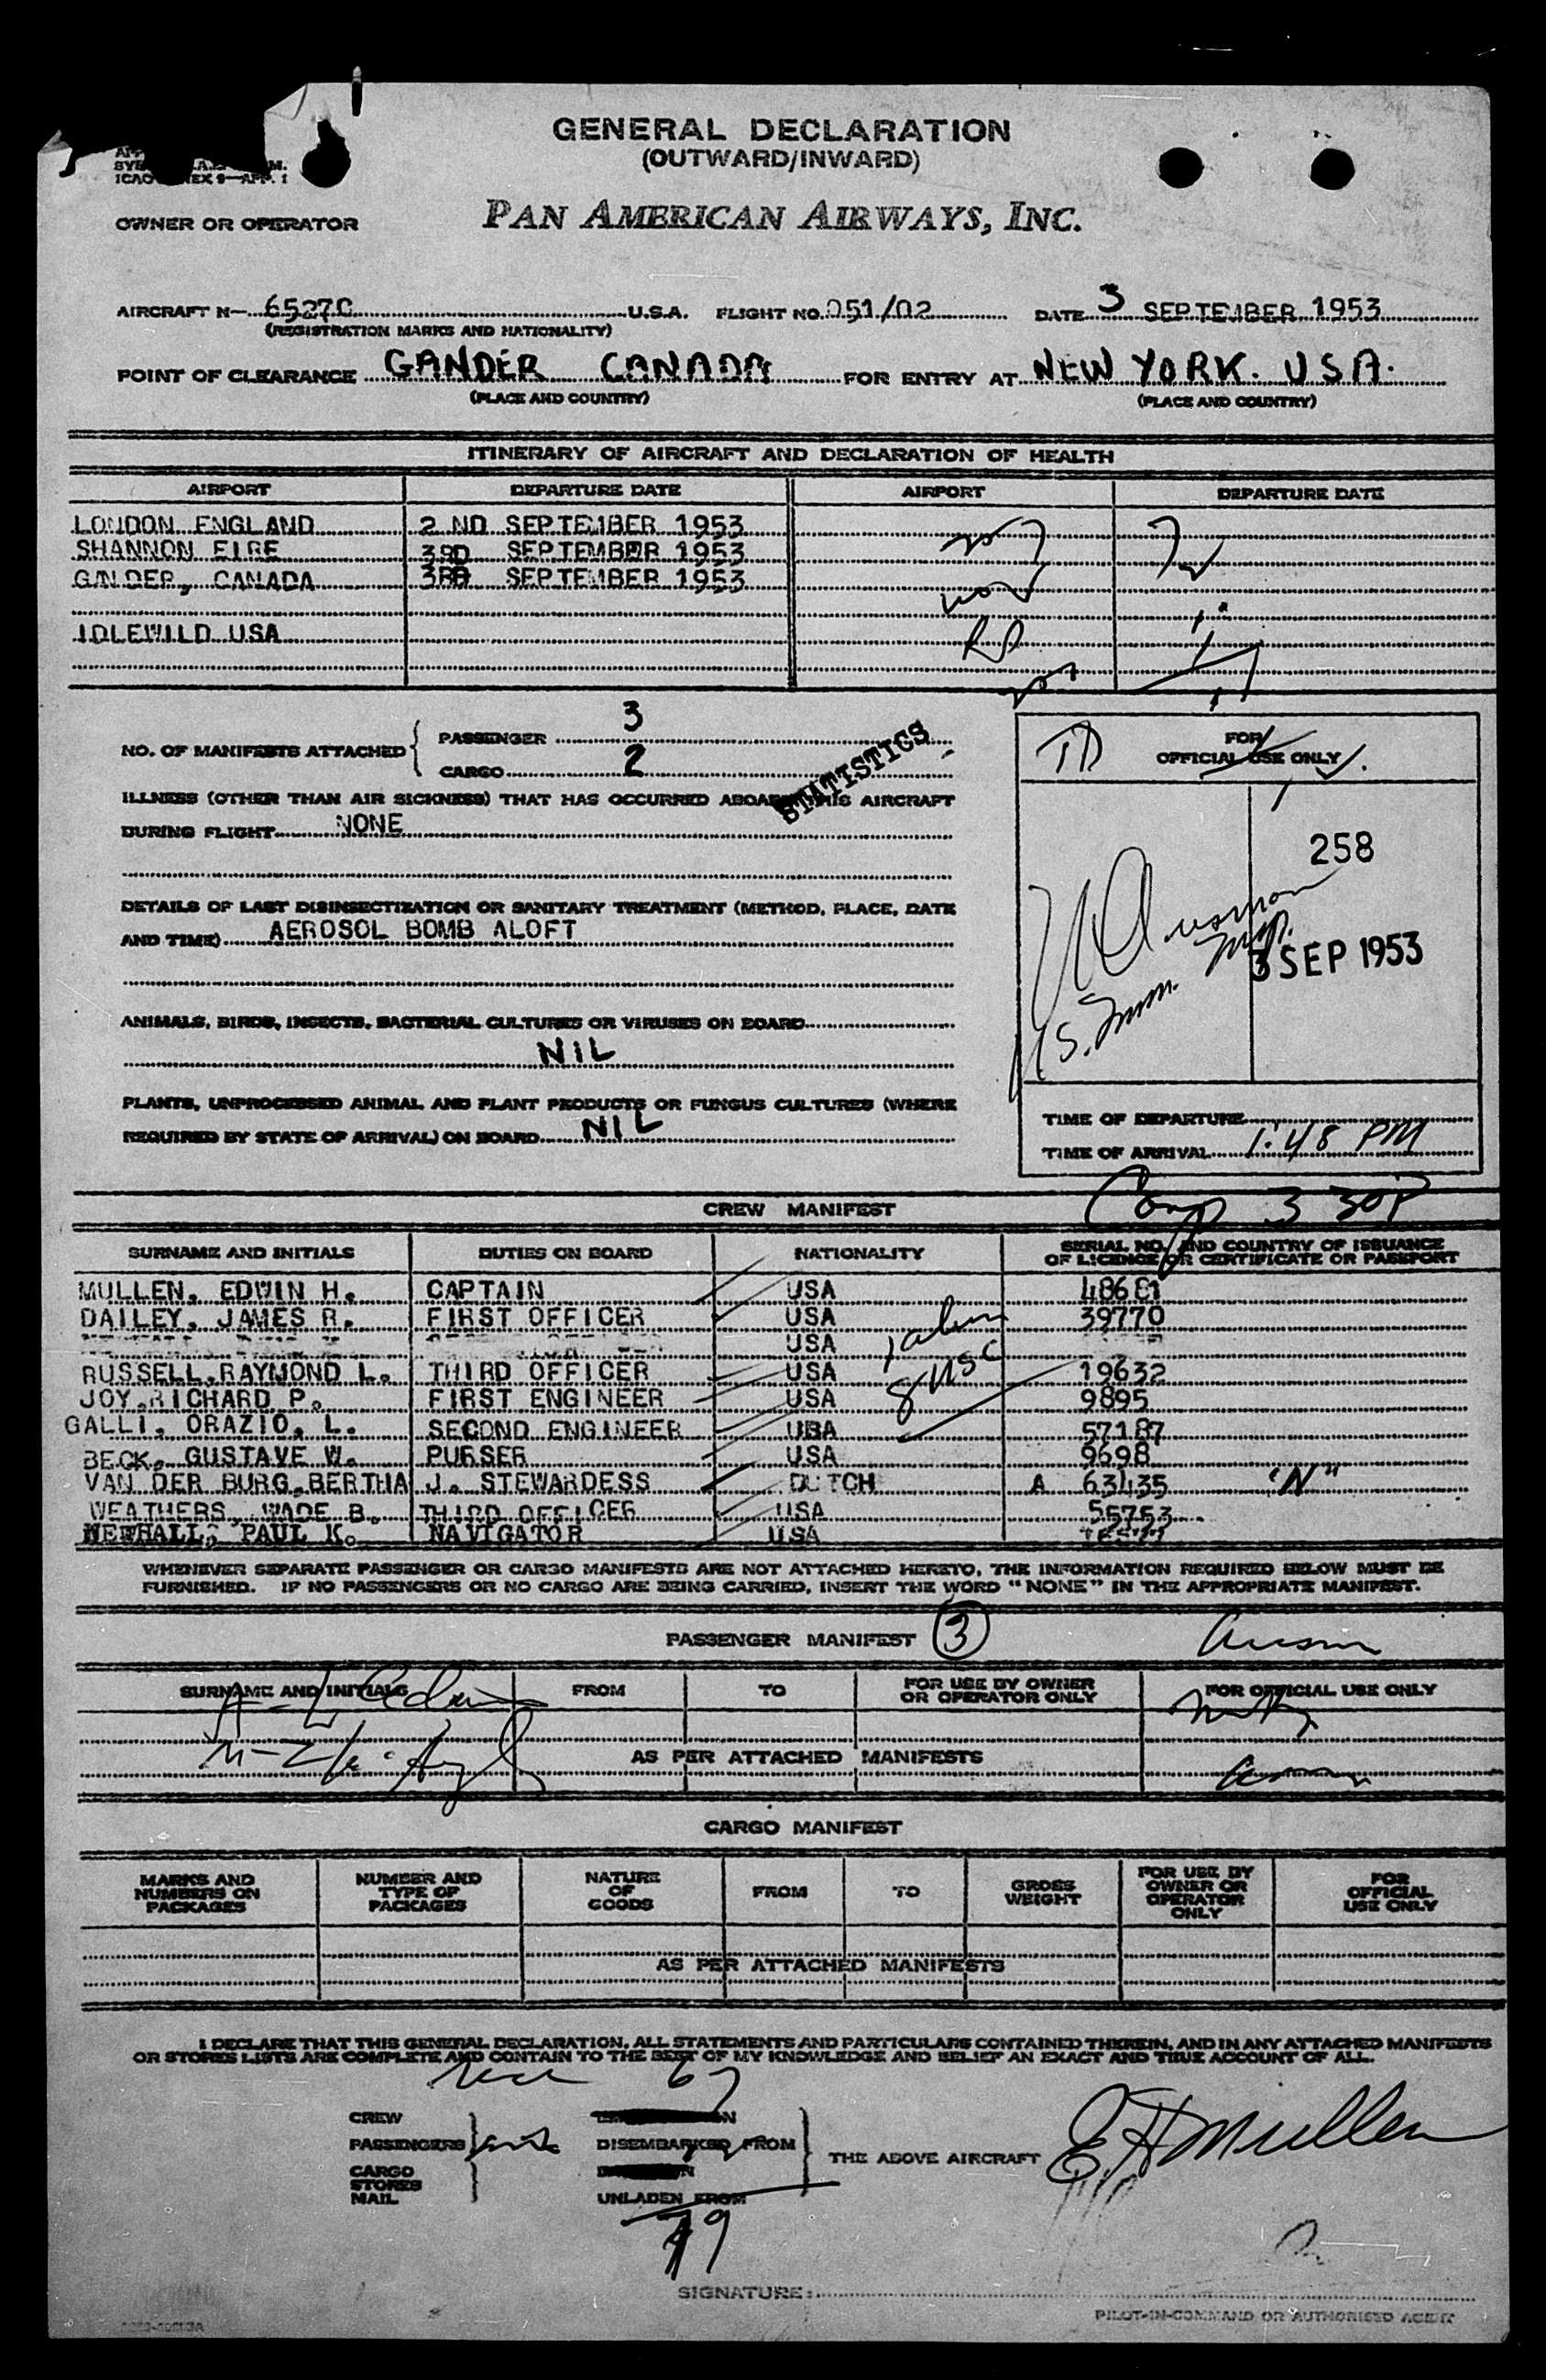 GENERAL DECLARATION
(OUTWARD/INWARD)
ICAO ANNEX 9—APP. 1
OWNER OR OPERATOR PAN AMERICAN AIRWAYS, INC.
AIRCRAFT N— 6527C U.S.A. FLIGHT NO. 051/02 DATE 3 SEPTEMBER 1953
(REGISTRATION MARKS AND NATIONALITY)
POINT OF CLEARANCE GANDER CANADA FOR ENTRY AT NEW YORK. USA.
(PLACE AND COUNTRY) (PLACE AND COUNTRY)
ITINERARY OF AIRCRAFT AND DECLARATION OF HEALTH
AIRPORT DEPARTURE DATE AIRPORT DEPARTURE DATE
LONDON ENGLAND 2 ND SEPTEMBER 1953
SHANNON EIRE 3RD SEPTEMBER 1953
GANDER, CANADA 3RD SEPTEMBER 1953
IDLEWILD USA
NO. OF MANIFESTS ATTACHED { PASSENGER 3
CARGO 2
STATISTICS
ILLNESS (OTHER THAN AIR SICKNESS) THAT HAS OCCURRED ABOARD THIS AIRCRAFT
DURING FLIGHT NONE
DETAILS OF LAST DISINSECTIZATION OR SANITARY TREATMENT (METHOD, PLACE, DATE
AND TIME) AEROSOL BOMB ALOFT
ANIMALS, BIRDS, INSECTS, BACTERIAL CULTURES OR VIRUSES ON BOARD
NIL
PLANTS, UNPROCESSED ANIMAL AND PLANT PRODUCTS OR FUNGUS CULTURES (WHERE
REQUIRED BY STATE OF ARRIVAL) ON BOARD NIL
FOR
OFFICIAL USE ONLY
258
3 SEP 1953
TIME OF DEPARTURE
TIME OF ARRIVAL 1:48 PM
Comp 3 30P
CREW MANIFEST
SURNAME AND INITIALS DUTIES ON BOARD NATIONALITY SERIAL NO. AND COUNTRY OF ISSUANCE
OF LICENCE OR CERTIFICATE OR PASSPORT
MULLEN, EDWIN H. CAPTAIN USA 48681
DAILEY, JAMES R. FIRST OFFICER USA 39770
USA
RUSSELL, RAYMOND L. THIRD OFFICER USA 19632
JOY, RICHARD P. FIRST ENGINEER USA 9895
GALLI, ORAZIO, L. SECOND ENGINEER USA 57187
BECK, GUSTAVE W. PURSER USA 9698
VAN DER BURG, BERTHA J. STEWARDESS DUTCH A 63435 "N"
WEATHERS, WADE B. THIRD OFFICER USA 55753
NEWHALL, PAUL K. NAVIGATOR USA
1 alien
8 USC
WHENEVER SEPARATE PASSENGER OR CARGO MANIFESTS ARE NOT ATTACHED HERETO, THE INFORMATION REQUIRED BELOW MUST BE
FURNISHED. IF NO PASSENGERS OR NO CARGO ARE BEING CARRIED, INSERT THE WORD "NONE" IN THE APPROPRIATE MANIFEST.
PASSENGER MANIFEST 3
SURNAME AND INITIALS FROM TO FOR USE BY OWNER
OR OPERATOR ONLY FOR OFFICIAL USE ONLY
AS PER ATTACHED MANIFESTS
CARGO MANIFEST
MARKS AND
NUMBERS ON
PACKAGES NUMBER AND
TYPE OF
PACKAGES NATURE
OF
GOODS FROM TO GROSS
WEIGHT FOR USE BY
OWNER OR
OPERATOR
ONLY FOR
OFFICIAL
USE ONLY
AS PER ATTACHED MANIFESTS
I DECLARE THAT THIS GENERAL DECLARATION, ALL STATEMENTS AND PARTICULARS CONTAINED THEREIN, AND IN ANY ATTACHED MANIFESTS
OR STORES LISTS ARE COMPLETE AND CONTAIN TO THE BEST OF MY KNOWLEDGE AND BELIEF AN EXACT AND TRUE ACCOUNT OF ALL.
CREW
PASSENGERS DISEMBARKED FROM THE ABOVE AIRCRAFT E H Mullen
CARGO
STORES
MAIL UNLADEN FROM
79
SIGNATURE:
PILOT-IN-COMMAND OR AUTHORISED AGENT